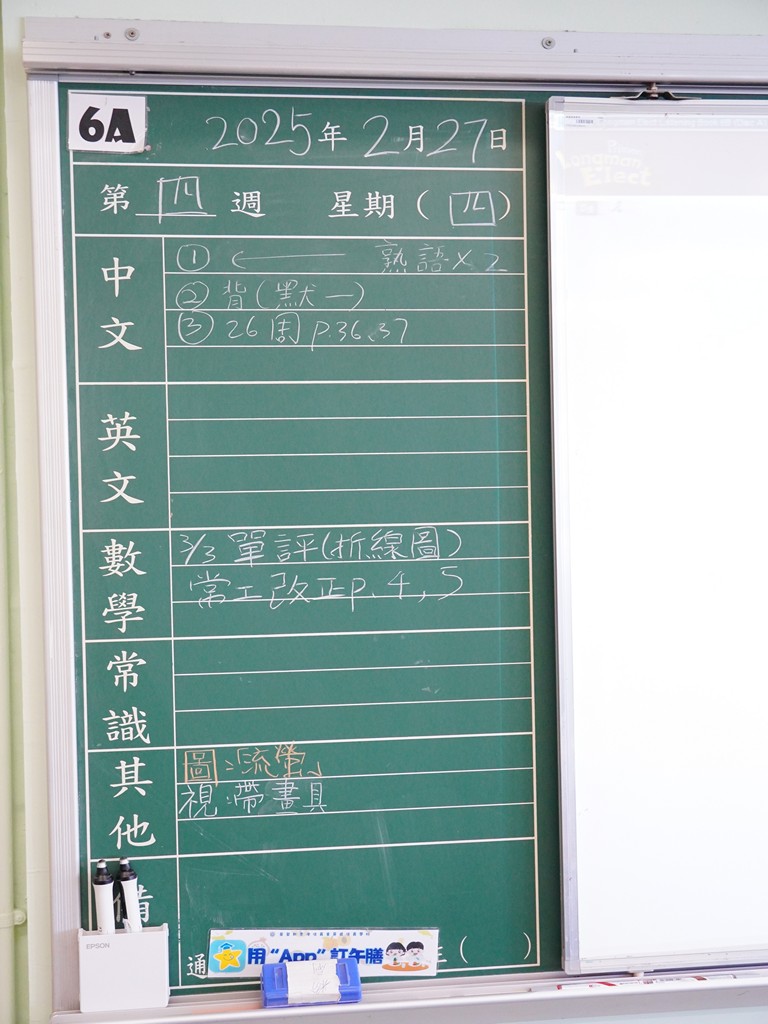 6A
2025年2月27日
第 四 週 星期(四)
中文
① ← 熟語×2
② 背(默一)
③ 26周 p.36、37
英文
數學
3/3 單評(折線圖)
常工改正p.4,5
常識
其他
圖:「流螢」
視:帶畫具
備
通
用“App”訂午膳
年( )
EPSON